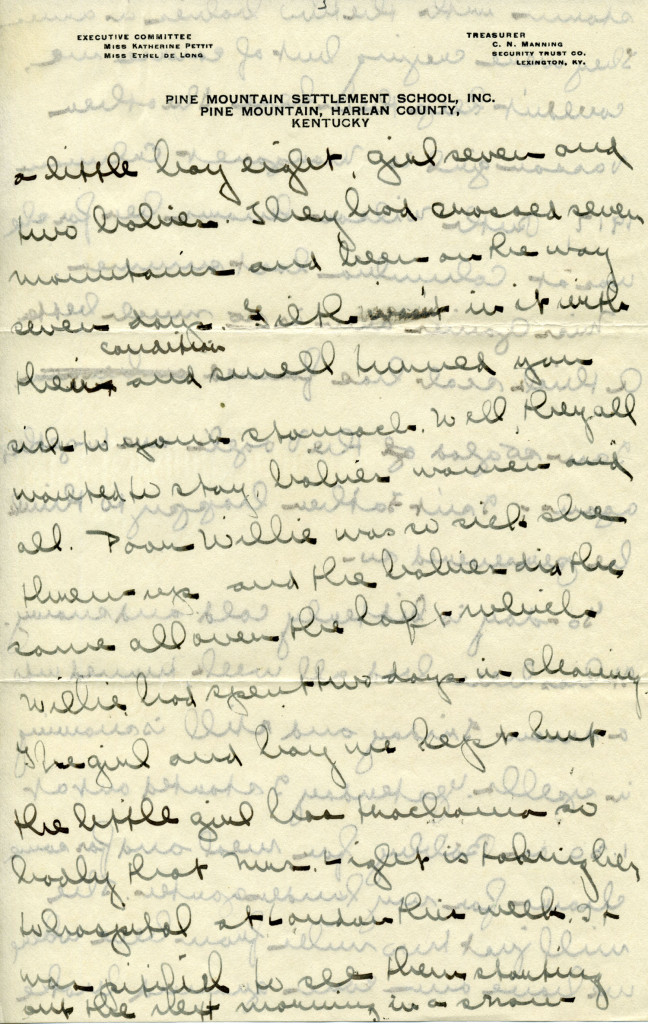 3
EXECUTIVE COMMITTEE
MISS KATHERINE PETTIT
MISS ETHEL DE LONG
TREASURER
C. N. MANNING
SECURITY TRUST CO.
LEXINGTON, KY.
PINE MOUNTAIN SETTLEMENT SCHOOL, INC.
PINE MOUNTAIN, HARLAN COUNTY,
KENTUCKY
a little boy eight, girl seven and
two babies. They had crossed seven
mountains and been on the way
seven days. Filth wasn't in it with
condition
their and smell turned you
sick to your stomach. Well, they all
wanted to stay, babies women and
all. Poor Willie was so sick she
threw up and the babies did the
same all over the loft which
Willie had spent two days in cleaning.
The girl and boy we kept but
the little girl has trachoma so
badly that Mrs. is taking her
to hospital at London this week. It
was pitiful to see them starting
out the next morning in a snow